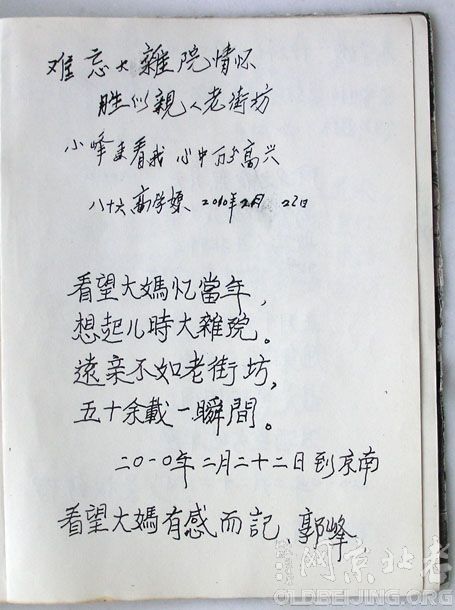 难忘大雜院情怀
胜似親人老街坊
小峰来看我 心中万分高兴
八十六高学 2010年2月22日
看望大媽忆當年，
想起儿時大雜院。
遠亲不如老街坊，
五十余載一瞬間。
二〇一〇年二月二十二日到京南
看望大媽有感而記、郭峰
老北京网
OLDBEIJING.ORG